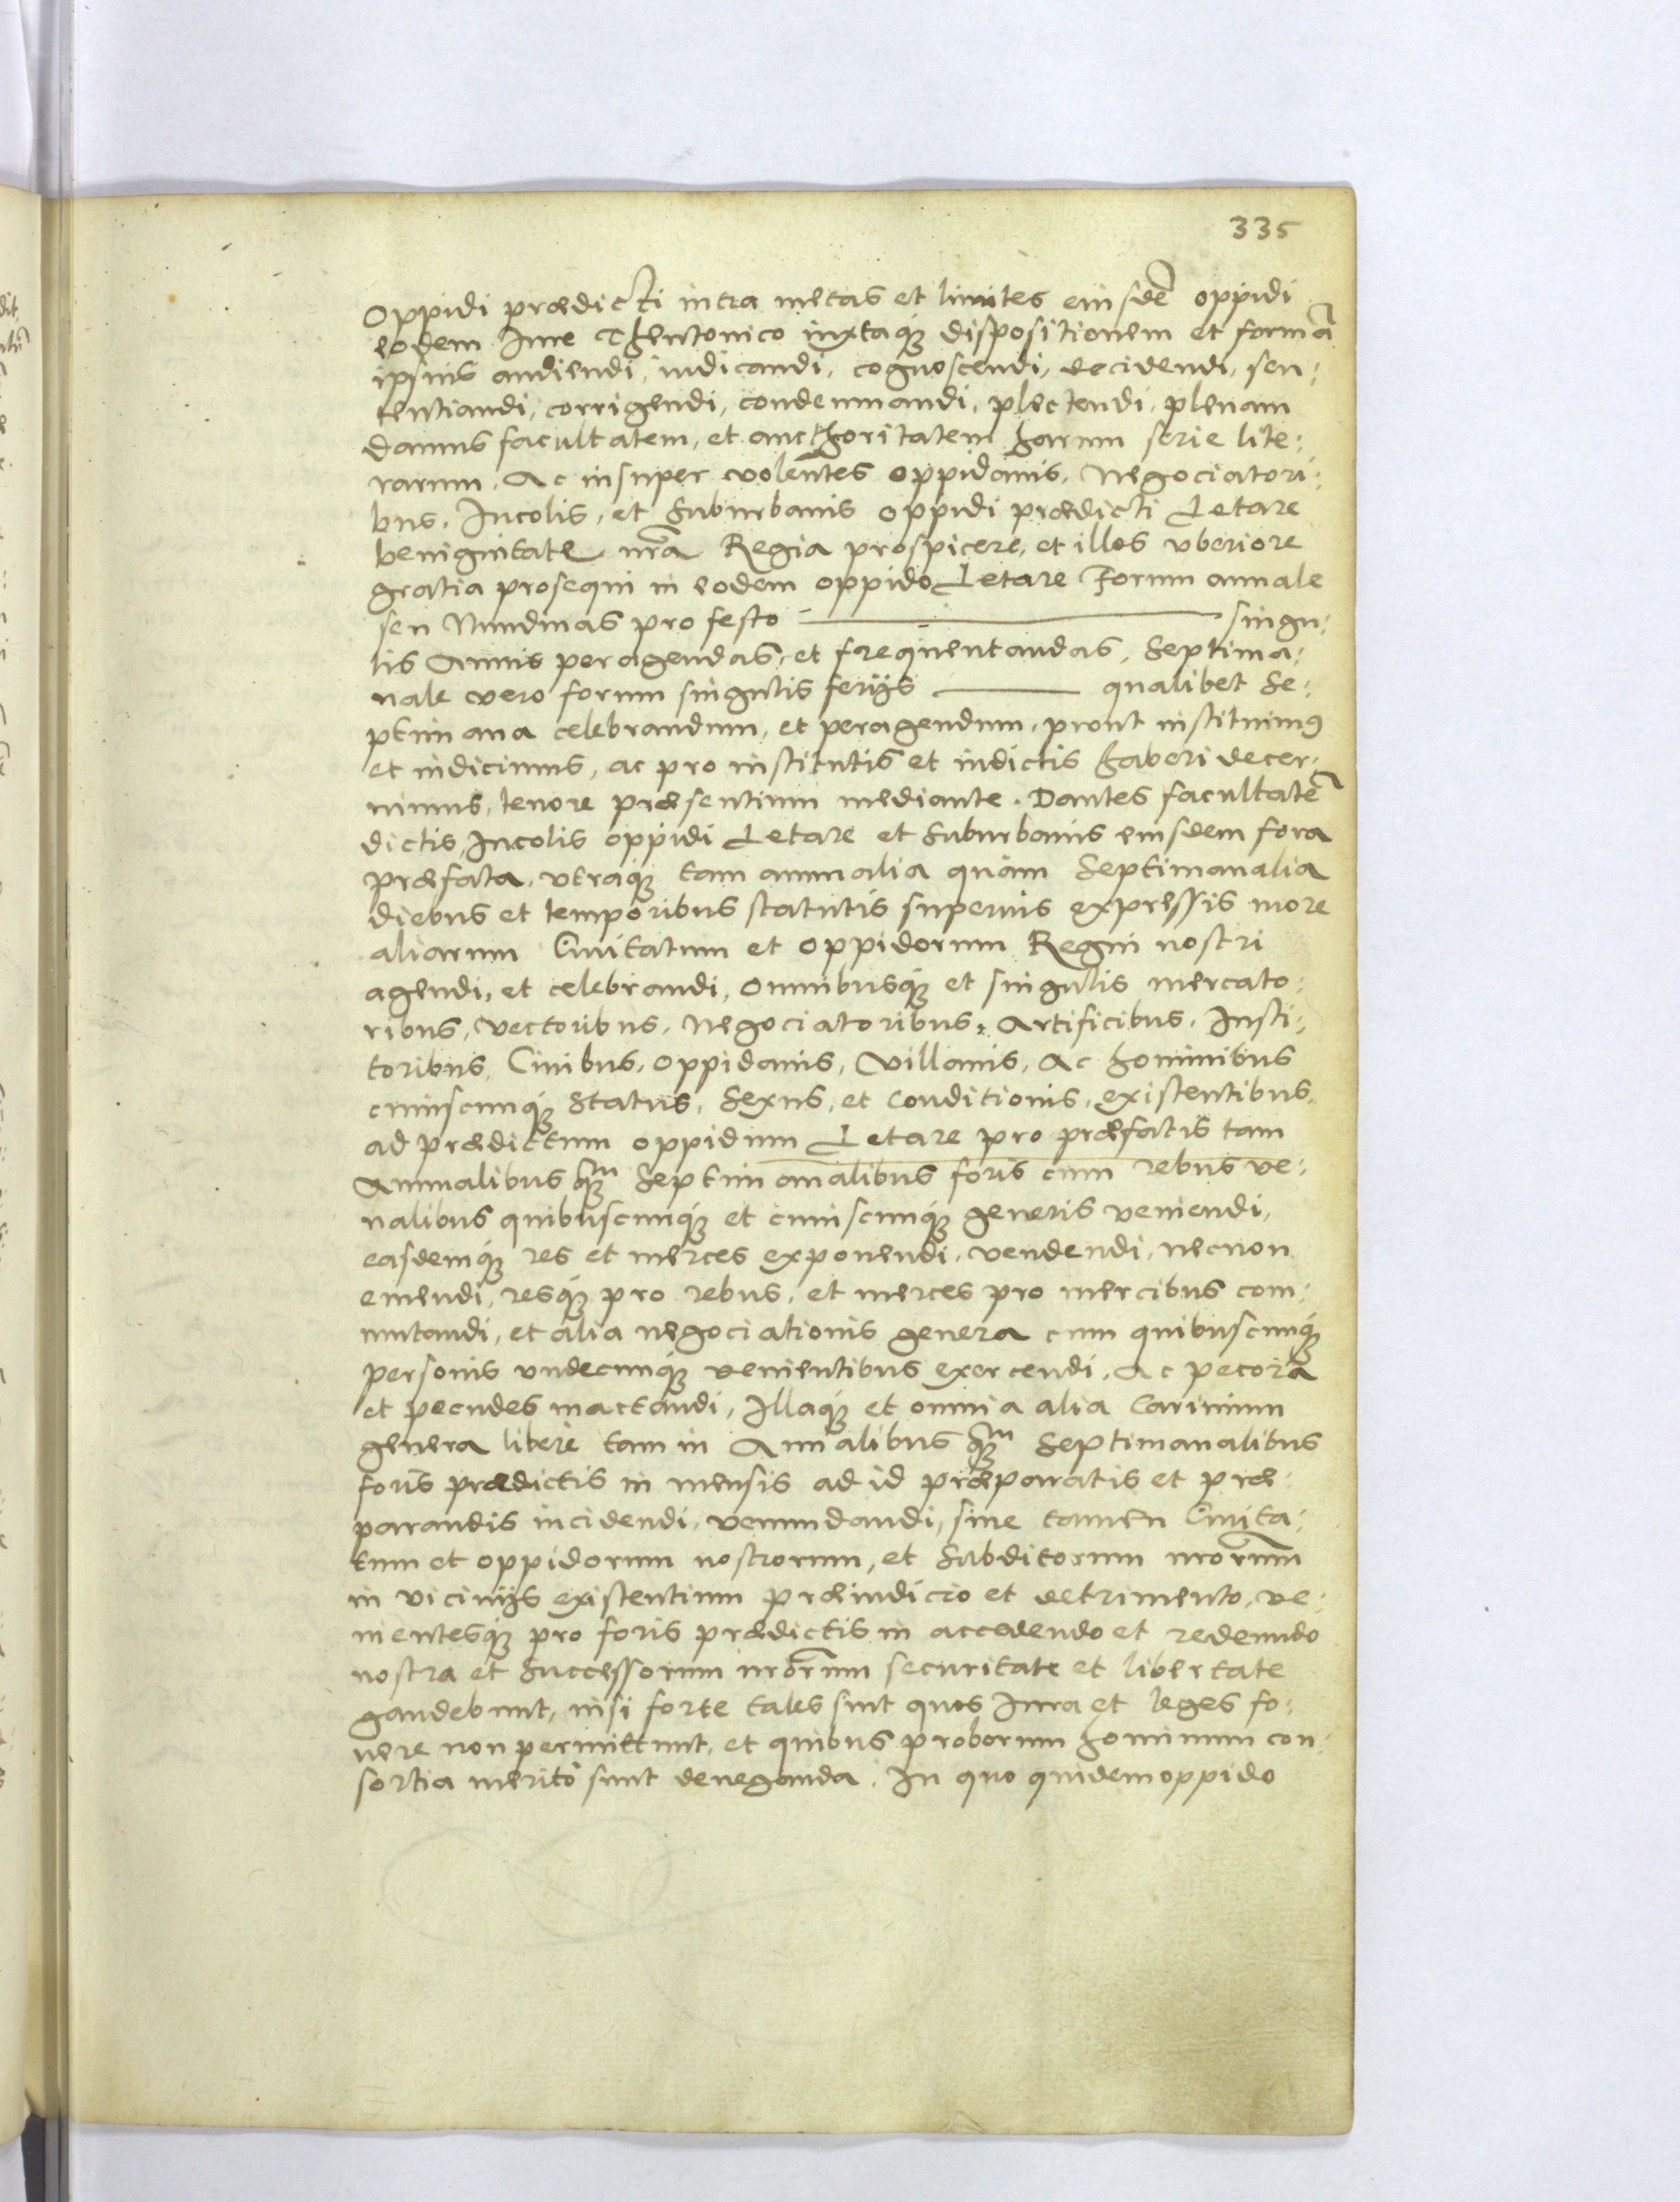 335
Oppidi prædicti intra metas et limites eiusdē oppidi
eodem Iure Theutonico iuxtaq3 dispositionem et formā
ipsius audiendi, iudicandi, cognoscendi, decidendi, sen:
tentiandi, corrigendi, condemnandi, plectendi, plenam
damus facultatem, et aucthoritatem harum serie lite:
rarum. Ac insuper volentes oppidanis, Negociatori:
bus, Incolis, et Suburbanis oppidi prædicti Letare
benignitate nr̄a Regia prospicere, et illos vberiore
gratia prosequi in eodem oppido Letare Forum annale
seu Nundinas pro festo ——— singu:
lis Annis peragendas, et frequentandas, Septima:
nale vero forum singulis ferijs ——— qualibet Se:
ptimana celebrandum, et peragendum, prout instituimus
et indicimus, ac pro institutis et indictis haberi decer:
nimus, tenore præsentium mediante. Dantes facultatē
dictis Incolis oppidi Letare et Suburbanis eiusdem fora
præfata, vtraq3 tam annualia quàm Septimanalia
diebus et temporibus statutis superius expressis more
aliarum Ciuitatum et oppidorum Regni nostri
agendi, et celebrandi, omnibusq3 et singulis mercato:
ribus, Vectoribus, Negociatoribus, Artificibus, Insti:
toribus, Ciuibus, oppidanis, Villanis, Ac hominibus
cuiuscunq3 Status, Sexus, et Conditionis, existentibus,
ad prædictum oppidum Letare pro præfatis tam
Annualibus q3m Septimanalibus foris cum rebus ve:
nalibus quibuscunq3 et cuiuscunq3 generis veniendi,
easdemq3 res et merces exponendi, vendendi, necnon
emendi, resq3 pro rebus, et merces pro mercibus com:
mutandi, et alia negociationis genera cum quibuscunq3
personis vndecunq3 venientibus exercendi. Ac pecora
et pecudes mactandi, Illaq3 et omnia alia Carnium
genera liberè tam in Annalibus q3m Septimanalibus
foris prædictis in mensis ad id præparatis et præ:
parandis incidendi, venundandi, sine tamen Ciuita:
tum et oppidorum nostrorum, et Subditorum nr̄orum
in vicinijs existentium præiudicio et detrimento, ve:
nientesq3 pro foris prædictis in accedendo et redeundo
nostra et Successorum nr̄orum securitate et libertate
gaudebunt, nisi forte tales sint quos Iura et leges fo:
uere non permittunt, et quibus proborum hominum con:
sortia meritò sunt deneganda. In quo quidem oppido